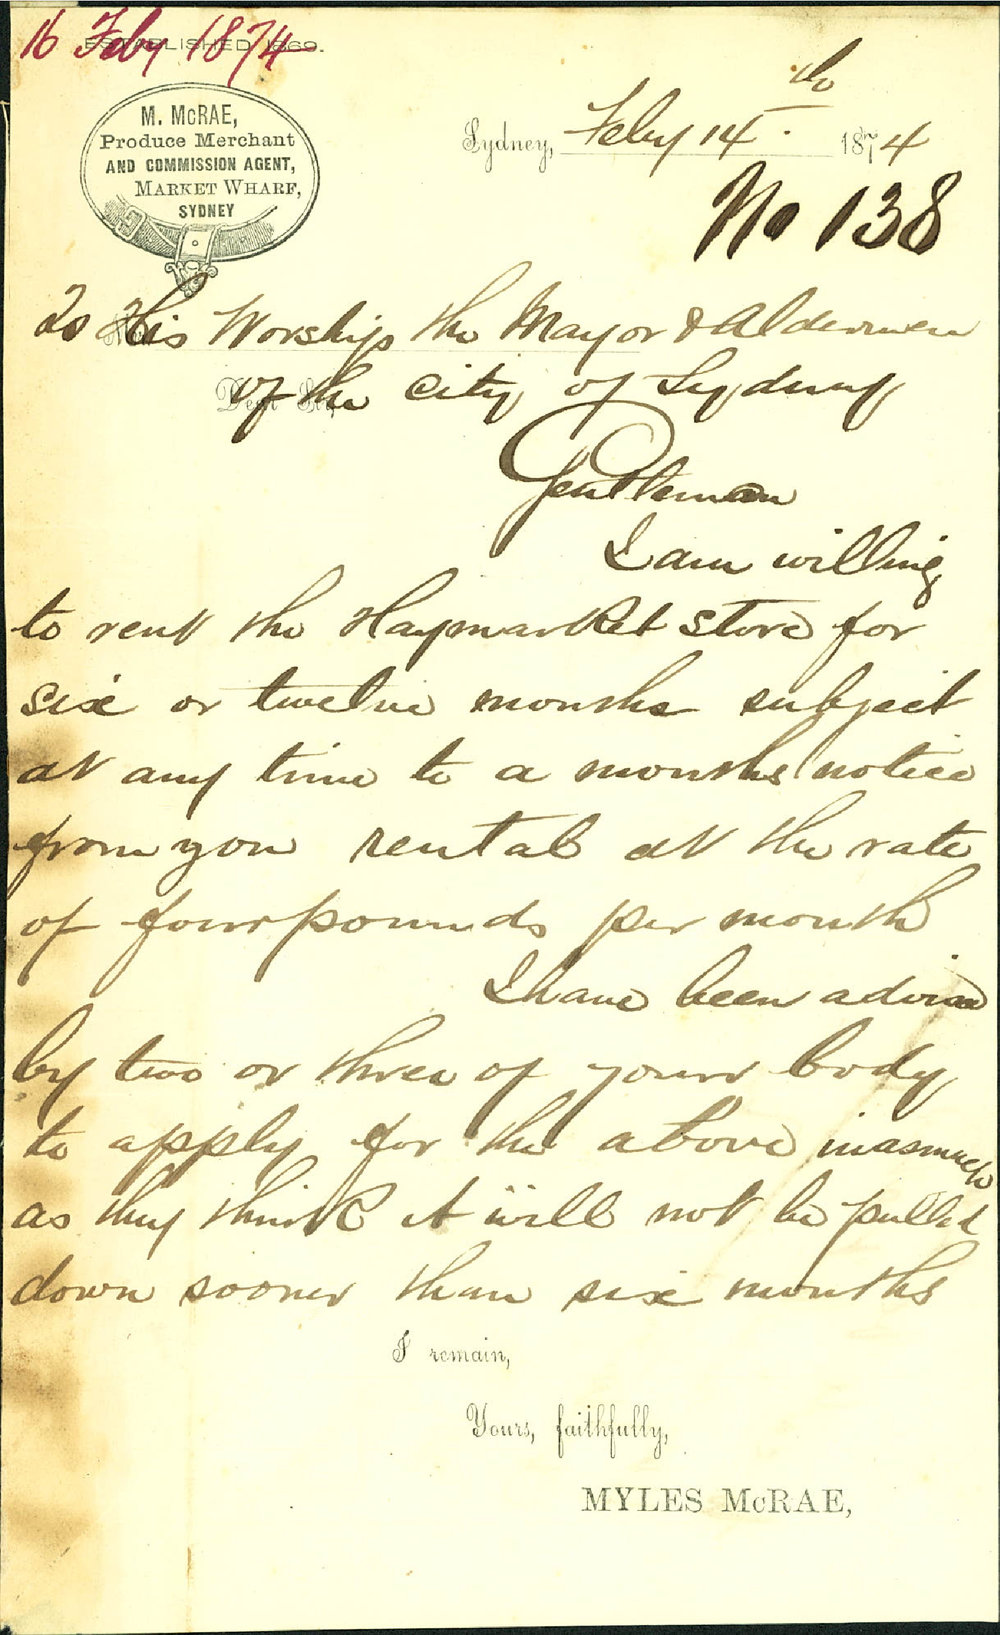 16 Feby 1874
ESTABLISHED 1869.
M. McRAE,
Produce Merchant
AND COMMISSION AGENT,
MARKET WHARF,
SYDNEY
Sydney, Feby 14th 1874
No 138
To His Worship the Mayor & Aldermen
Dear Sir,
of the City of Sydney
Gentlemen
I am willing
to rent the Haymarket store for
six or twelve months subject
at any time to a months notice
from you rental at the rate
of four pounds per month
I have been advised
by two or three of your body
to apply for the above inasmuch
as they think it will not be pulled
down sooner than six months
I remain,
Yours, faithfully,
MYLES McRAE,